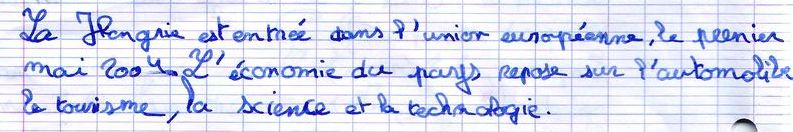 La Hongrie est entrée dans l'union européenne, le premier
mai 2004. L'économie du pays repose sur l'automobile
le tourisme, la science et la technologie.